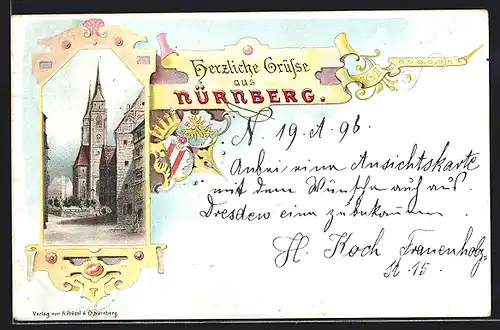 Herzliche Grüße
aus
NÜRNBERG.
N. 19. A. 96.
Anbei eine Ansichtskarte
mit dem Wunsche auch aus
Dresden eine zu bekommen
H. Koch Frauenholz-
St. 15.
Verlag von A. & Co. Nürnberg.